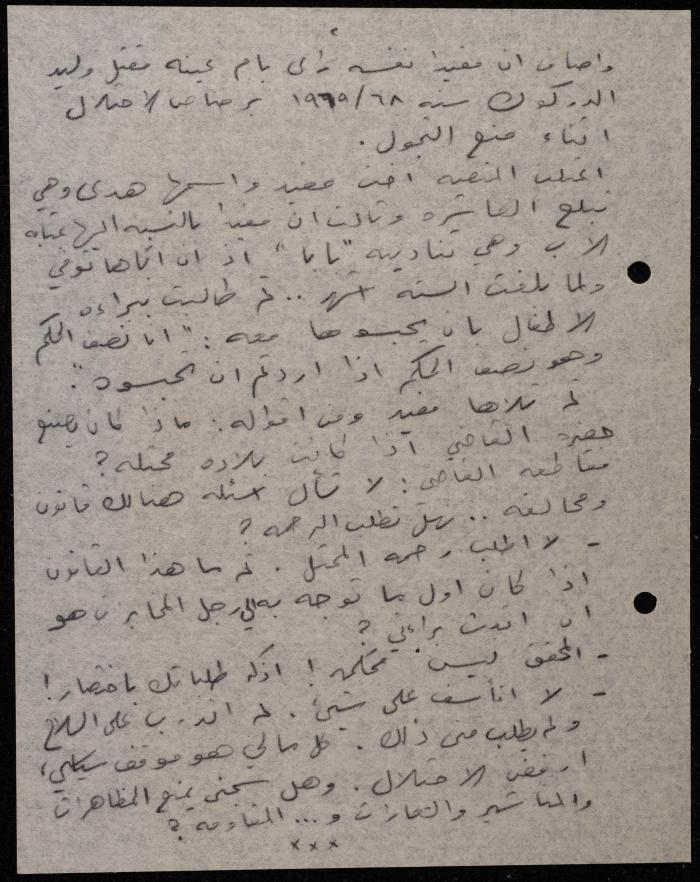 واضاف ان مفيدا نفسه رأى بأم عينه مقتل وليد
الدركوك سنه ١٩٦٩/٦٨ برصاص الاحتلال
اثناء منع التجول .
اعتلت المنصه اخت مفيد واسمها هدى وهي
تبلغ العاشره وقالت ان مفيدا بالنسبه اليها بمثابه
الاب وهي تناديه "بابا" اذ ان اباها توفي
ولما بلغت السته اشهر .. ثم طالبت ببراءه
الاطفال بان يحبسوها معه : " انا نصف الحكم
وهو نصف الحكم اذا اردتم ان تحبسوه " .
ثم تلاها مفيد ومن اقواله : ماذا كان يصنع
حضره القاضي اذا كانت بلاده محتله ؟
فقاطعه القاضي : لا تسأل اسئله هنالك قانون
ومخالفه .. فهل تطلب الرحمه ؟
- لا اطلب رحمه المحتل . ثم ما هذا القانون
اذا كان اول ما توجه به الي رجل المخابرات هو
ان اثبت براءتي ؟
- المحقق ليس محكمه ! اذكر طلباتك باختصار !
- لا اتأسف على شيئ . لم اتدرب على السلاح
ولم يطلب مني ذلك . كل مالي هو موقف سياسي ،
ارفض الاحتلال . وهل سجني يمنع المظاهرات
والمناشير والشعارات و ... المقاومه ؟
×××